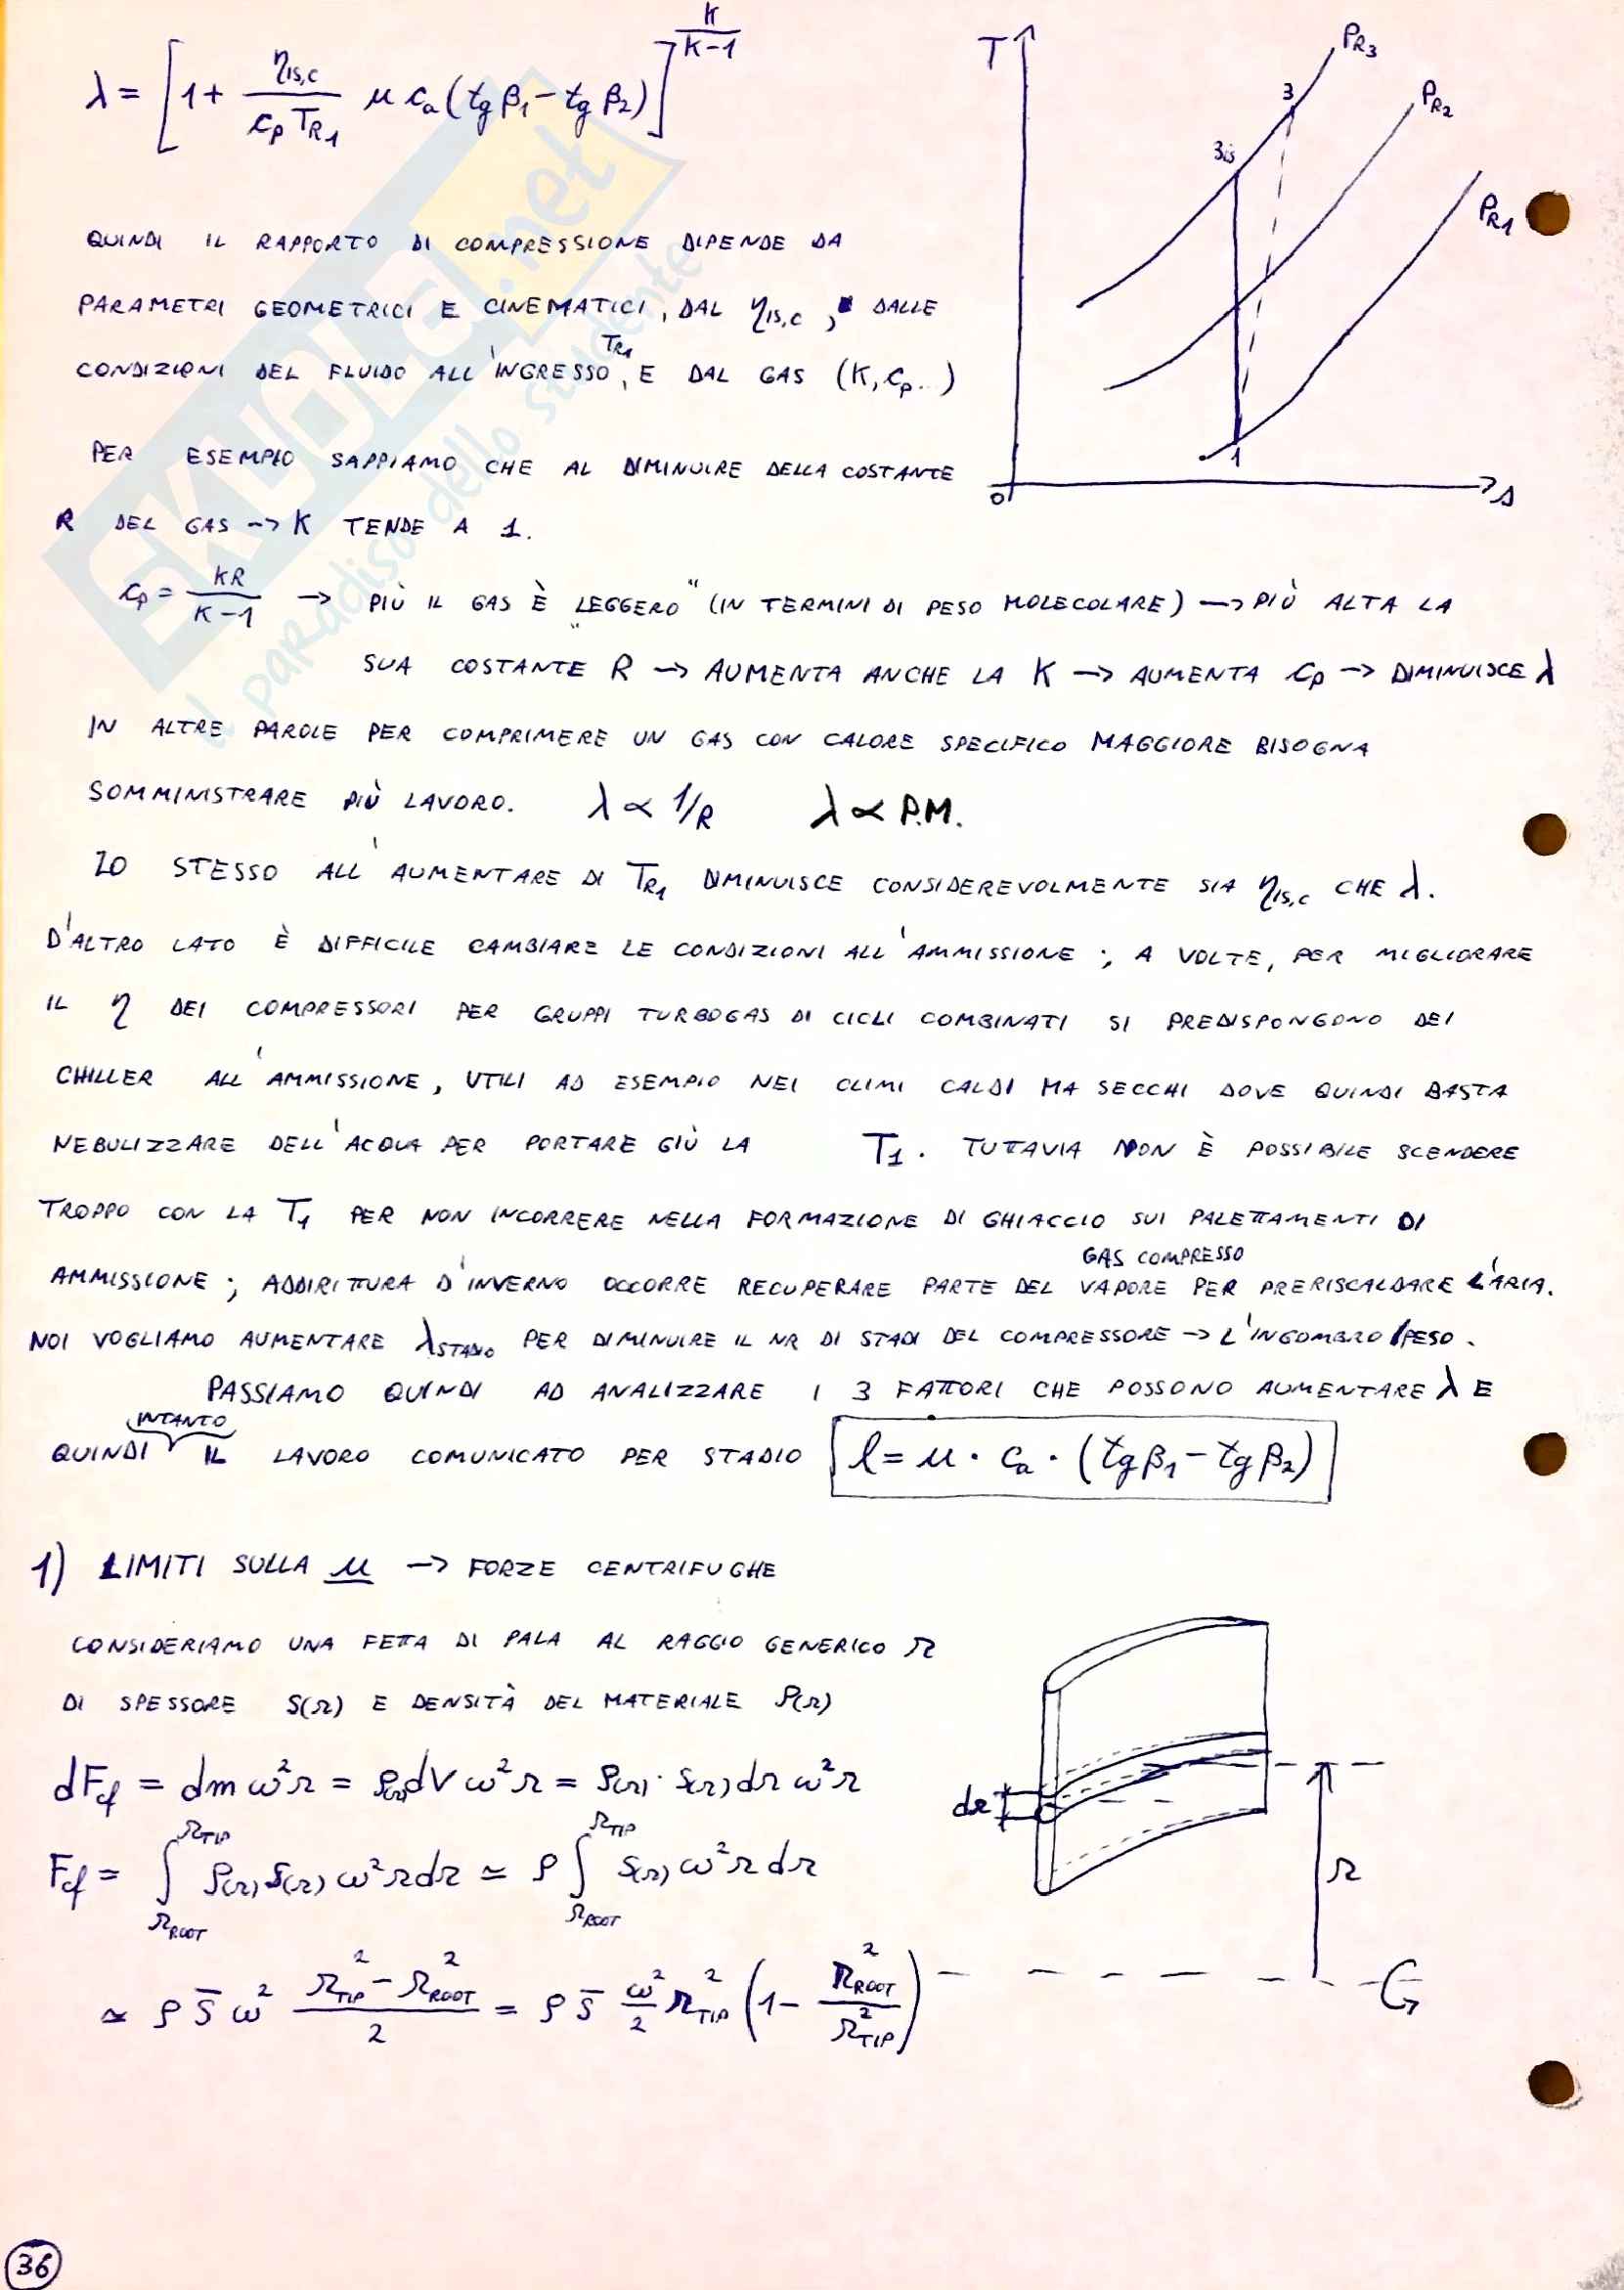 λ = [1 + η_is,c / (c_p T_R1) u c_a (tg β₁ − tg β₂)]^(K/(K−1))
T
P_R3
3
P_R2
3is
P_R1
1
0
s
QUINDI IL RAPPORTO DI COMPRESSIONE DIPENDE DA
PARAMETRI GEOMETRICI E CINEMATICI, DAL η_is,c, DALLE
CONDIZIONI DEL FLUIDO ALL'INGRESSO T_R1, E DAL GAS (K, c_p..)
PER ESEMPIO SAPPIAMO CHE AL DIMINUIRE DELLA COSTANTE
R DEL GAS -> K TENDE A 1.
c_p = KR / (K−1) -> PIÙ IL GAS È "LEGGERO" (IN TERMINI DI PESO MOLECOLARE) -> PIÙ ALTA LA
SUA COSTANTE R -> AUMENTA ANCHE LA K -> AUMENTA c_p -> DIMINUISCE λ
IN ALTRE PAROLE PER COMPRIMERE UN GAS CON CALORE SPECIFICO MAGGIORE BISOGNA
SOMMINISTRARE PIÙ LAVORO. λ ∝ 1/R λ ∝ P.M.
LO STESSO ALL'AUMENTARE DI T_R1 DIMINUISCE CONSIDEREVOLMENTE SIA η_is,c CHE λ.
D'ALTRO LATO È DIFFICILE CAMBIARE LE CONDIZIONI ALL'AMMISSIONE; A VOLTE, PER MIGLIORARE
IL η DEI COMPRESSORI PER GRUPPI TURBOGAS DI CICLI COMBINATI SI PREDISPONGONO DEI
CHILLER ALL'AMMISSIONE, UTILI AD ESEMPIO NEI CLIMI CALDI MA SECCHI DOVE QUINDI BASTA
NEBULIZZARE DELL'ACQUA PER PORTARE GIÙ LA T₁. TUTTAVIA NON È POSSIBILE SCENDERE
TROPPO CON LA T₁ PER NON INCORRERE NELLA FORMAZIONE DI GHIACCIO SUI PALETTAMENTI DI
GAS COMPRESSO
AMMISSIONE; ADDIRITTURA D'INVERNO OCCORRE RECUPERARE PARTE DEL VAPORE PER PRERISCALDARE L'ARIA.
NOI VOGLIAMO AUMENTARE λ_STADIO PER DIMINUIRE IL NR DI STADI DEL COMPRESSORE -> L'INGOMBRO/PESO.
PASSIAMO QUINDI AD ANALIZZARE I 3 FATTORI CHE POSSONO AUMENTARE λ E
INTANTO
QUINDI IL LAVORO COMUNICATO PER STADIO l = u · c_a · (tg β₁ − tg β₂)
1) LIMITI SULLA u -> FORZE CENTRIFUGHE
CONSIDERIAMO UNA FETTA DI PALA AL RAGGIO GENERICO r
DI SPESSORE S(r) E DENSITÀ DEL MATERIALE ρ(r)
dF_cf = dm ω² r = ρ(r) dV ω² r = ρ(r) · S(r) dr ω² r
dr
F_cf = ∫_{r_ROOT}^{r_TIP} ρ(r) S(r) ω² r dr ≃ ρ ∫_{r_ROOT}^{r_TIP} S(r) ω² r dr
r
≃ ρ S̄ ω² (r²_TIP − r²_ROOT) / 2 = ρ S̄ ω²/2 r²_TIP (1 − r²_ROOT / r²_TIP)
36
SKUOLA.net
il paradiso dello studente